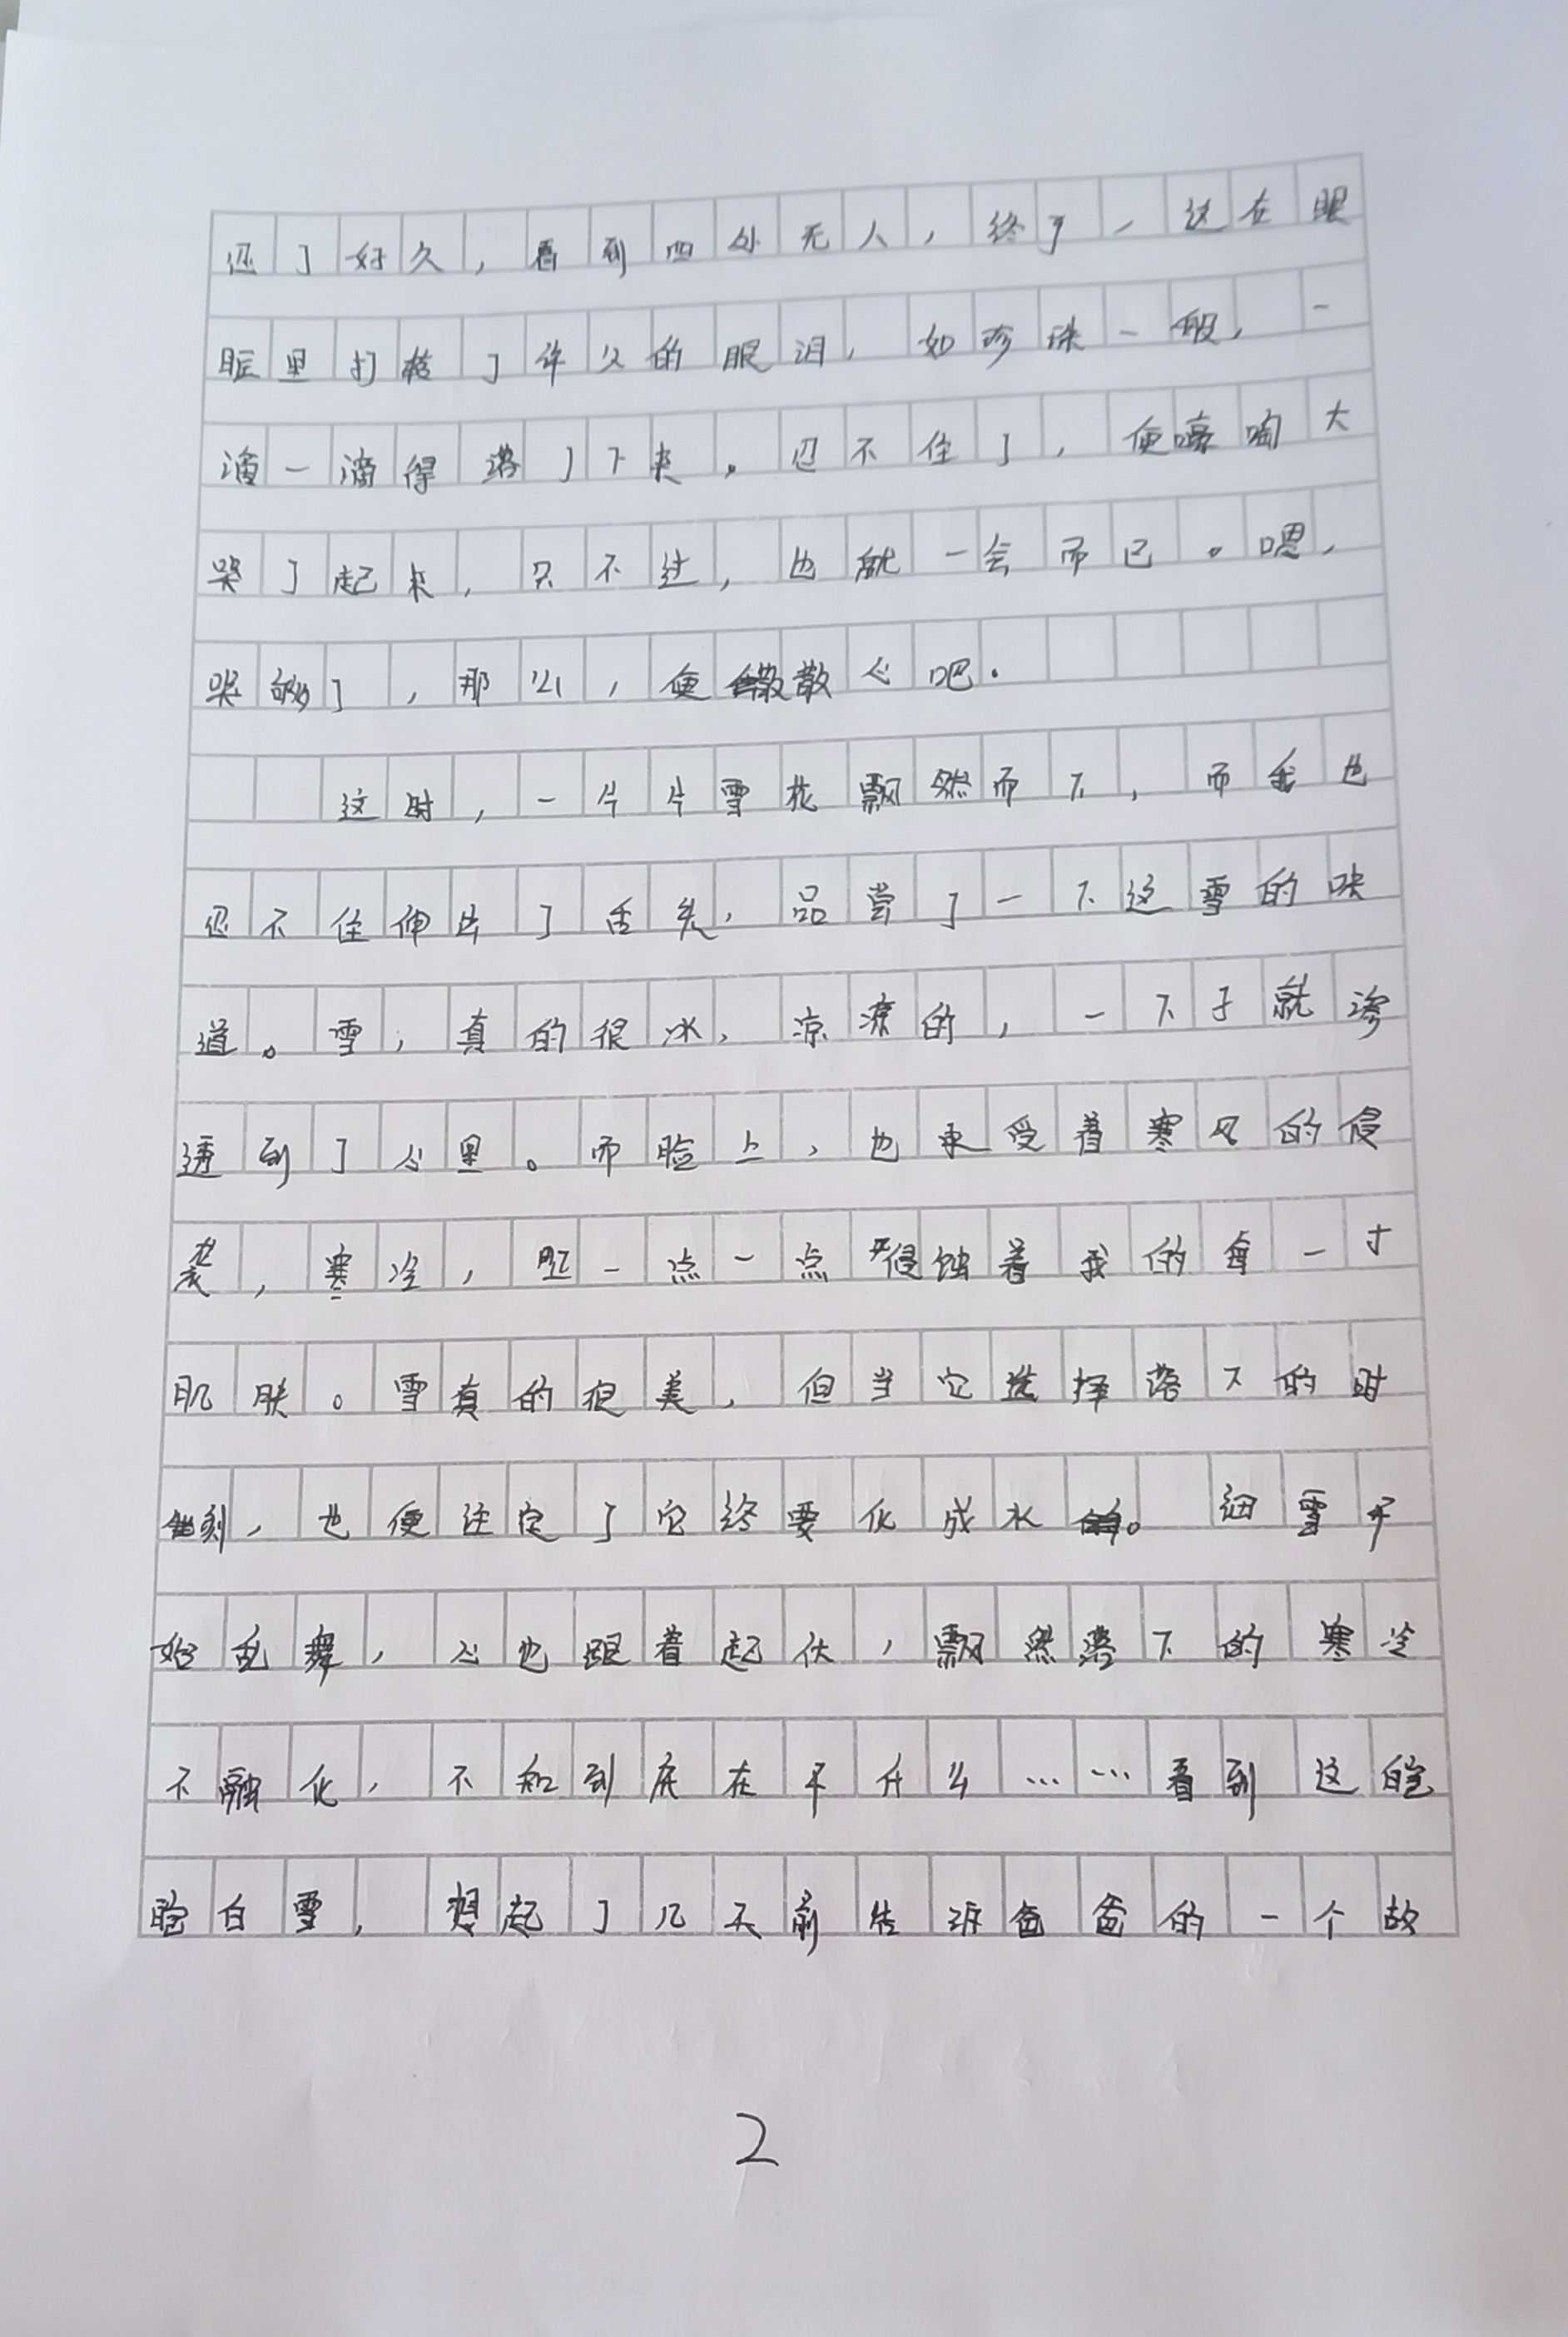 忍了好久，看到四处无人，终于，这在眼
眶里打转了许久的眼泪，如珍珠一般，一
滴一滴得落了下来。忍不住了，便嚎啕大
哭了起来，只不过，也就一会而已。嗯，
哭够了，那么，便散散心吧。
这时，一片片雪花飘然而下，而我也
忍不住伸出了舌头，品尝了一下这雪的味
道。雪，真的很冰，凉凉的，一下子就渗
透到了心里。而脸上，也承受着寒风的侵
袭，寒冷，一点一点侵蚀着我的每一寸
肌肤。雪真的很美，但当它选择落下的时
刻，也便注定了它终要化成水。细雪开
始乱舞，心也跟着起伏，飘然落下的寒冷
不融化，不知到底在干什么……看到这皑
皑白雪，想起了几天前告诉爸爸的一个故
2